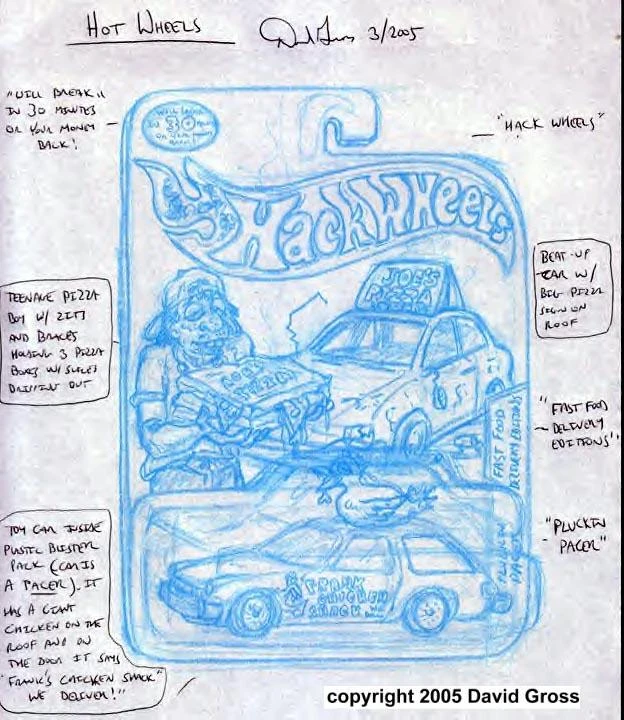 HOT WHEELS
3/2005
"WILL BREAK
IN 30 MINUTES
OR YOUR MONEY
BACK!
"HACK WHEELS"
WILL BREAK
IN 30
OR YOUR MONEY
BACK!
HACKWHEELS
BEAT-UP
CAR W/
BIG PIZZA
SIGN ON
ROOF
JOE'S
PIZZA
TEENAGE PIZZA
BOY W/ ZITS
AND BRACES
HOLDING 3 PIZZA
BOXES W/
OUT
JOE'S
PIZZA
"FAST FOOD
DELIVERY
EDITIONS"
FAST FOOD
DELIVERY EDITIONS
"PLUCKIN
PACER"
PLUCKIN
PACER
TOY CAR INSIDE
PLASTIC BLISTER
PACK (CAR IS
A PACER). IT
HAS A GIANT
CHICKEN ON THE
ROOF AND ON
THE DOOR IT SAYS
"FRANK'S CHICKEN SHACK"
WE DELIVER!"
FRANK
CHICKEN
SHACK
copyright 2005 David Gross